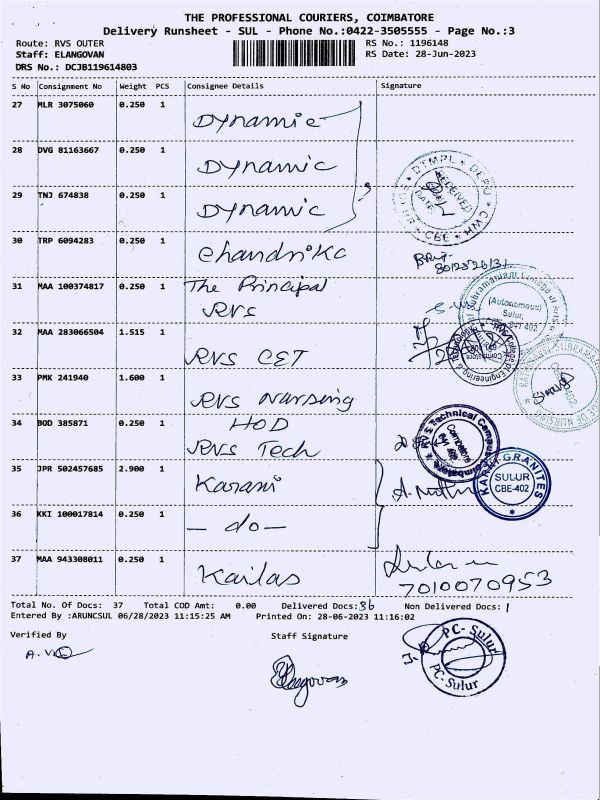 THE PROFESSIONAL COURIERS, COIMBATORE
Delivery Runsheet - SUL - Phone No.:0422-3505555 - Page No.:3
Route: RVS OUTER RS No.: 1196148
Staff: ELANGOVAN RS Date: 28-Jun-2023
DRS No.: DCJB119614803
S No Consignment No Weight PCS Consignee Details Signature
27 MLR 3075060 0.250 1 Dynamic
28 DVG 81163667 0.250 1 Dynamic
29 TNJ 674838 0.250 1 Dynamic
DTMPL * DEPO * CWH * CBE
RECEIVED
DATE
30 TRP 6094283 0.250 1 chandrika
31 MAA 100374817 0.250 1 The Principal
RVS
(Autonomous)
Sulur,
641 402
32 MAA 283066504 1.515 1 RVS CET
33 PMK 241940 1.600 1 RVS Nursing
34 BOD 385871 0.250 1 HOD
RVS Tech
RVS Technical Campus
Coimbatore
35 JPR 502457685 2.900 1 Karani
GRANITES
SULUR
CBE-402
36 KKI 100017814 0.250 1 - do -
37 MAA 943308011 0.250 1 Kailas
7010070953
Total No. Of Docs: 37 Total COD Amt: 0.00 Delivered Docs: 36 Non Delivered Docs: 1
Entered By :ARUNCSUL 06/28/2023 11:15:25 AM Printed On: 28-06-2023 11:16:02
Verified By Staff Signature
Elangovan
PC-Sulur
PC-Sulur